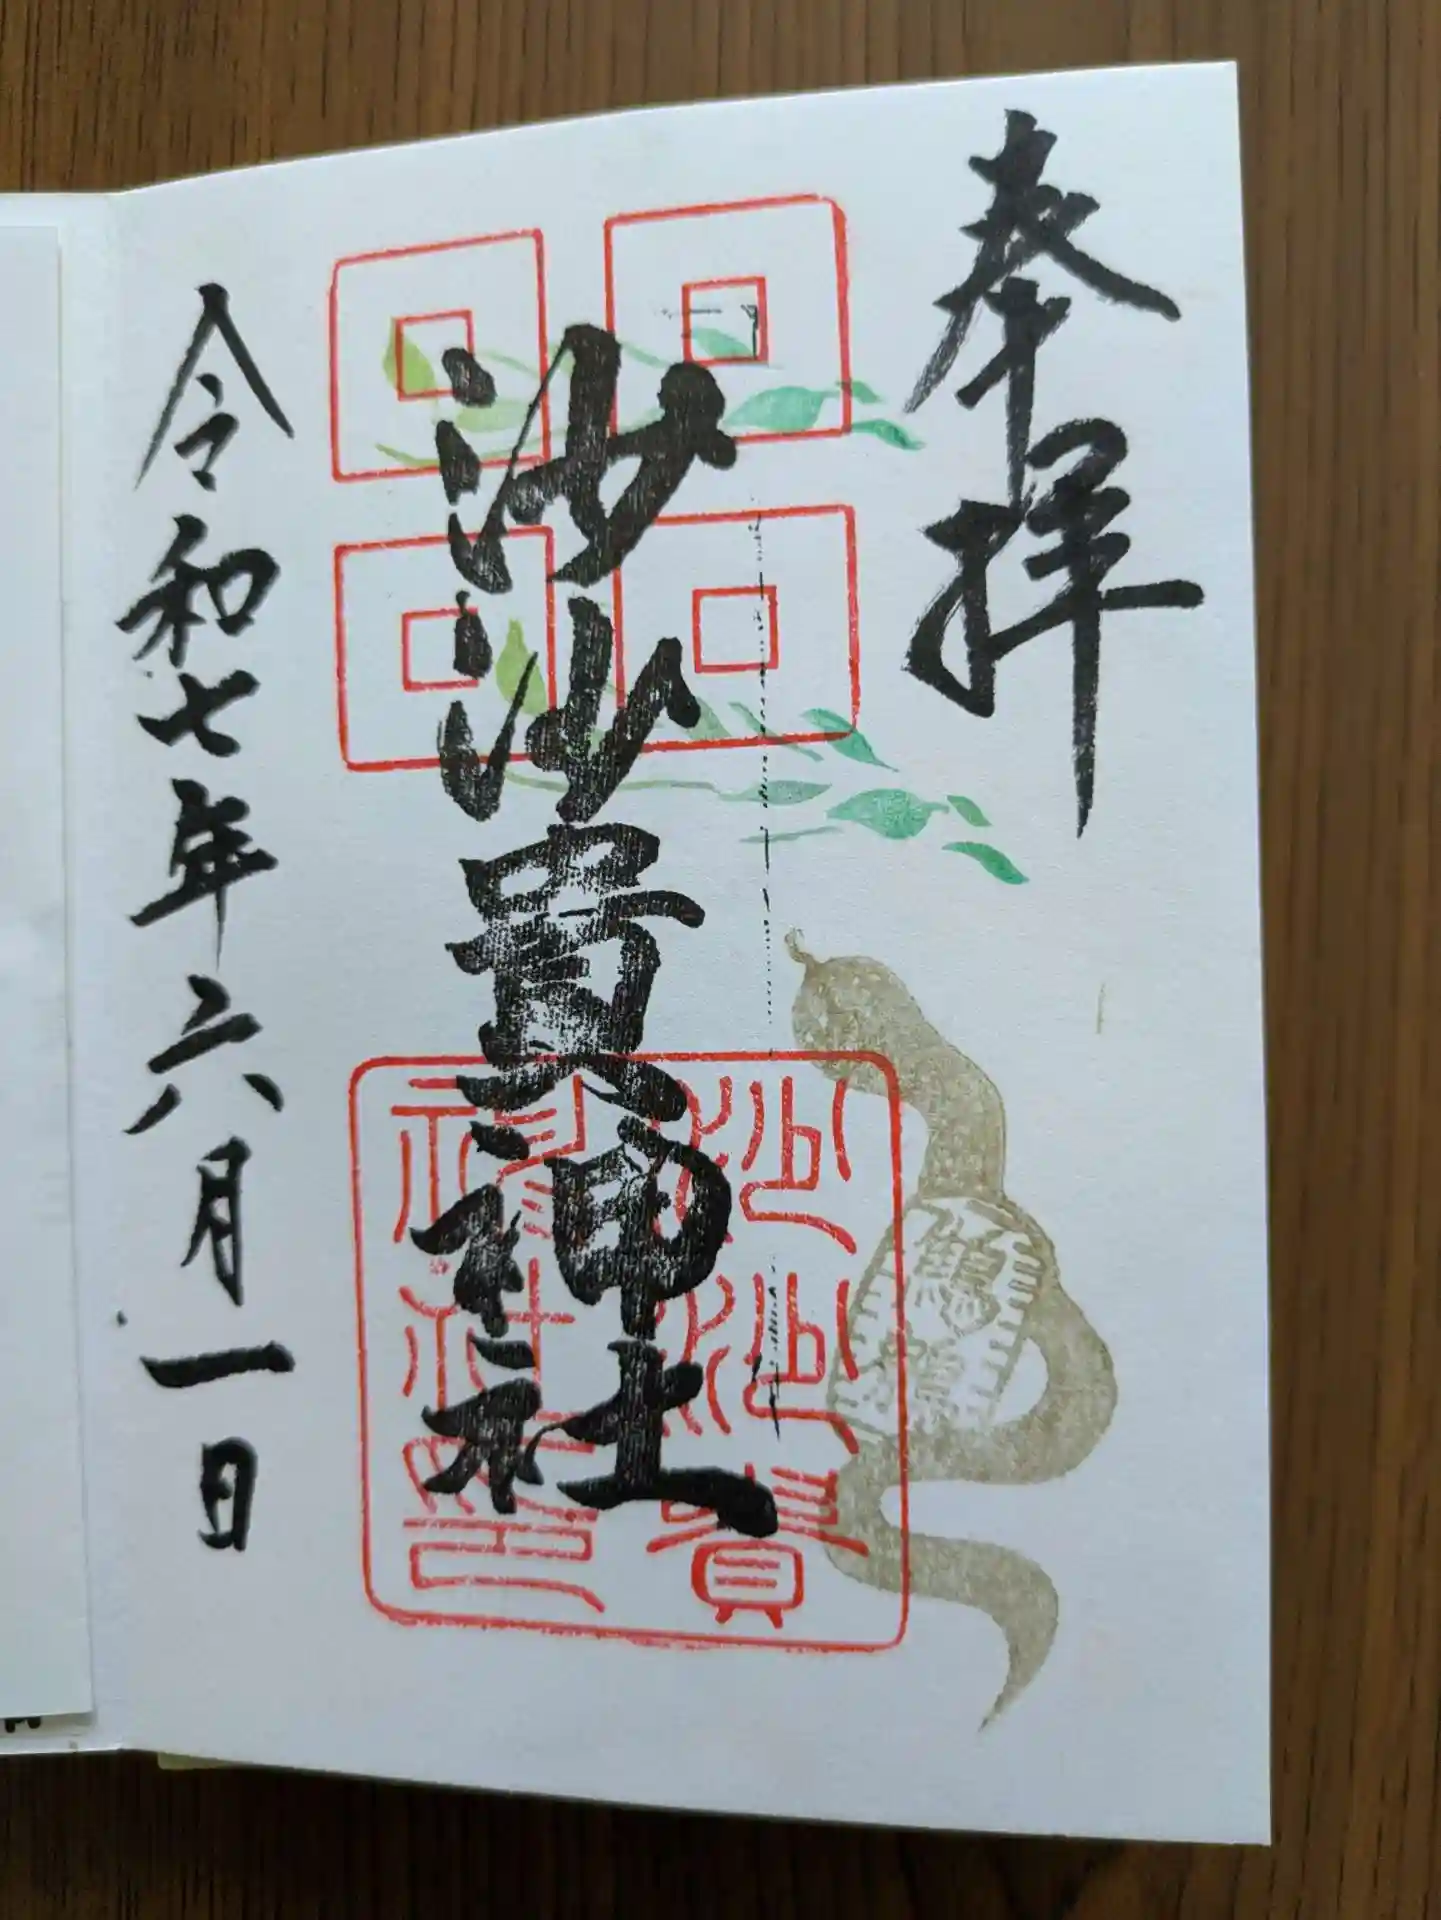 奉拝
沙沙貴神社
沙沙貴
神社璽
令和七年六月一日